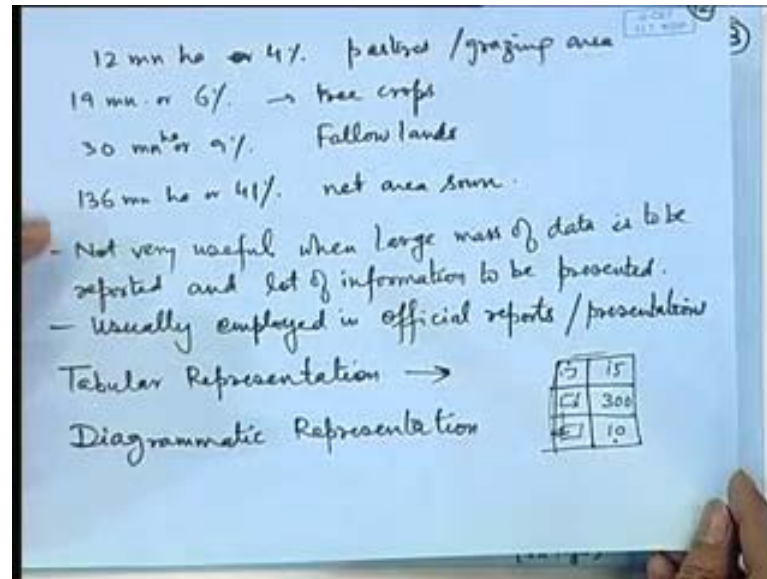 12 mn ha or 4% pastures / grazing area
19 mn. or 6% → tree crops
30 mn ha or 9% Fallow lands
136 mn ha or 41% net area sown.
- Not very useful when large mass of data is to be
reported and lot of information to be presented.
- Usually employed in official reports / presentations
Tabular Representation →
15
300
10
Diagrammatic Representation